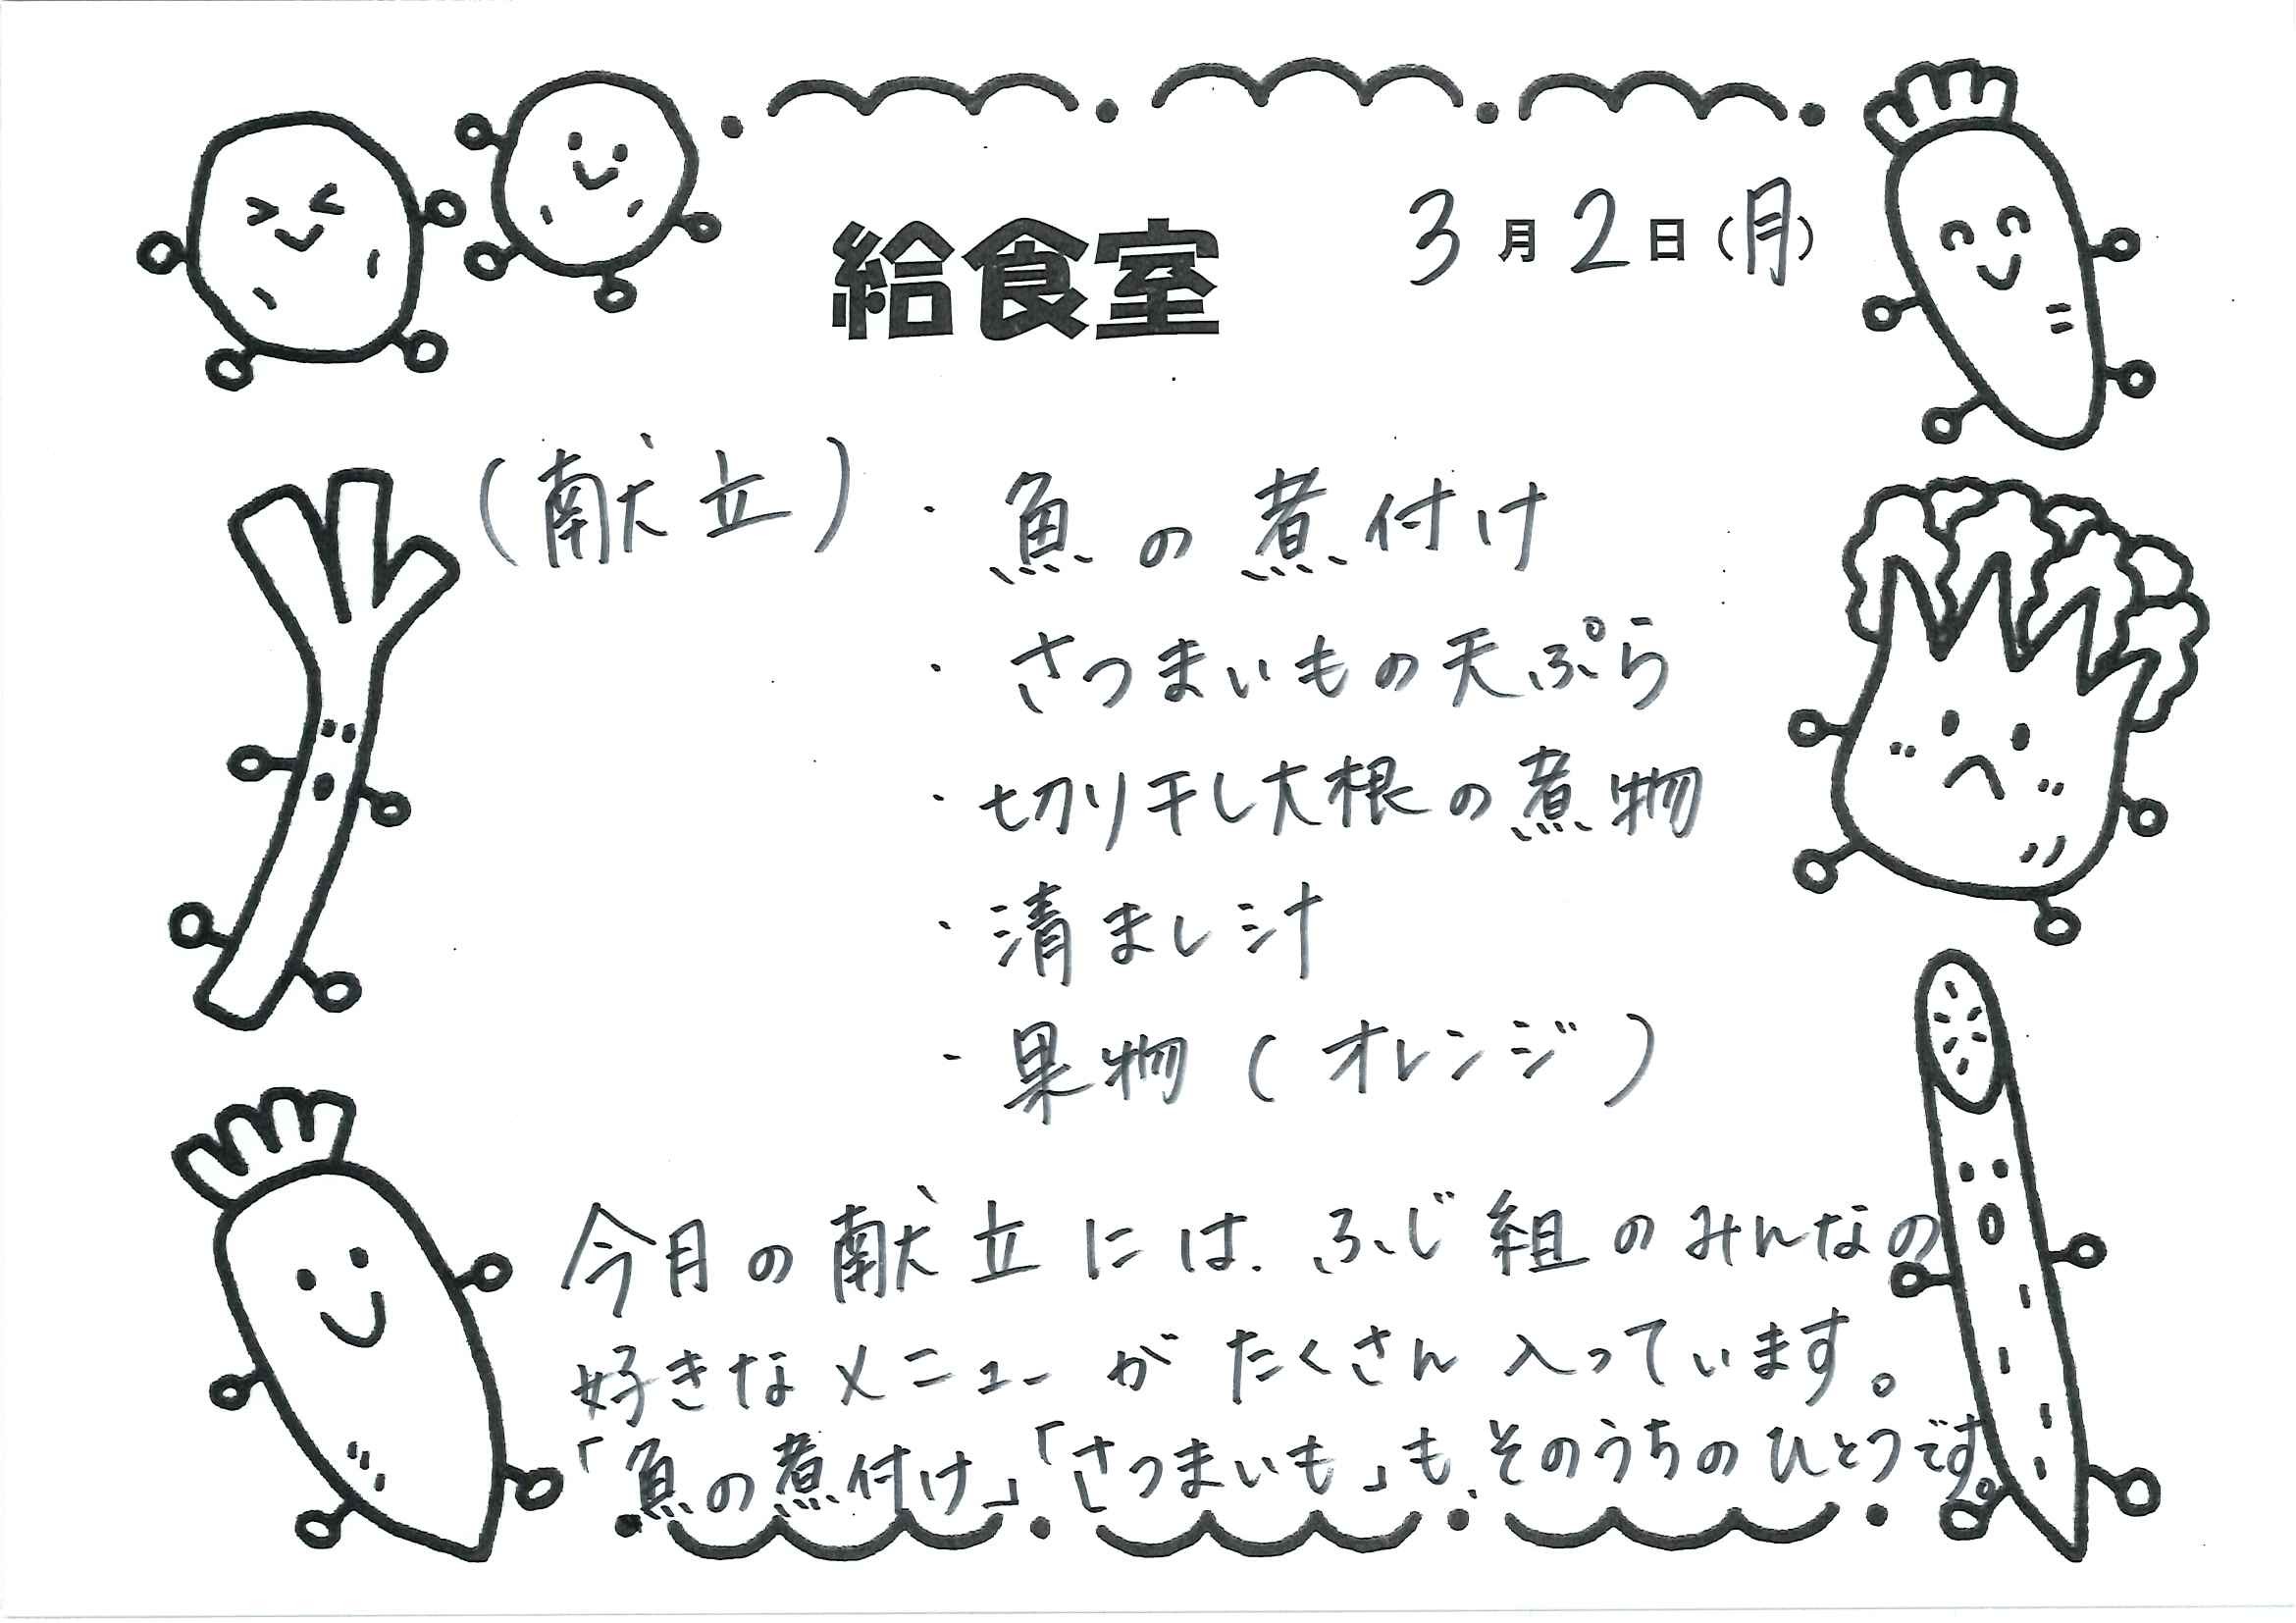 給食室
3月2日(月)
(献立)・魚の煮付け
・さつまいもの天ぷら
・切り干し大根の煮物
・清まし汁
・果物(オレンジ)
今月の献立には、ふじ組のみんなの
好きなメニューがたくさん入っています。
「魚の煮付け」「さつまいも」も、そのうちのひとつです。